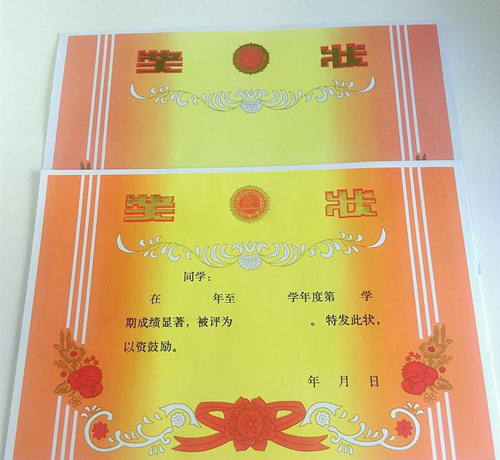 奖 状
奖 状
同学：
在 年至 学年度第 学
期成绩显著，被评为 。特发此状，
以资鼓励。
年 月 日